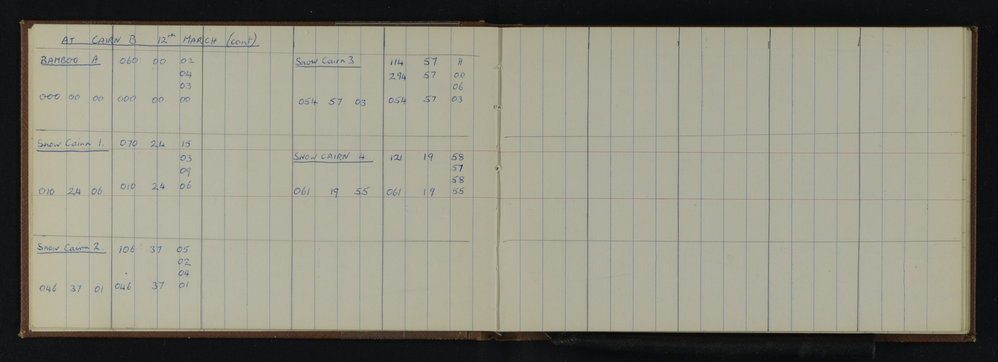 AT CAIRN B 12th MARCH (cont)
BAMBOO A 060 00 02
04
03
000 00 00 000 00 00
Snow Cairn 1. 070 24 15
03
09
010 24 06 010 24 06
Snow Cairn 2 106 37 05
02
04
046 37 01 046 37 01
Snow Cairn 3 114 57 11
294 57 00
06
054 57 03 054 57 03
SNOW CAIRN 4 121 19 58
57
58
061 19 55 061 19 55